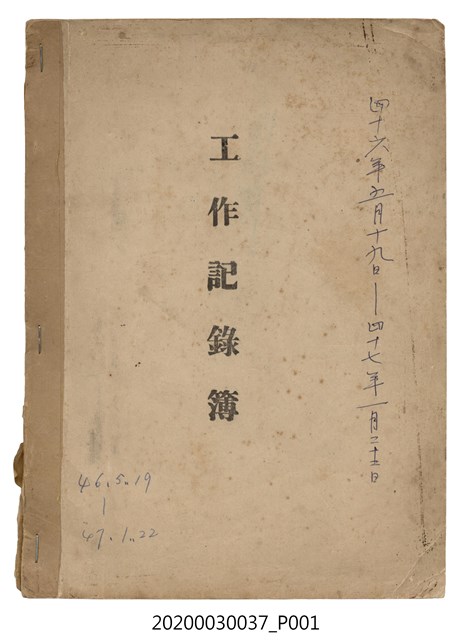 四十六年五月十九日—四十七年一月二十二日
工作記錄簿
46.5.19
|
47.1.22
20200030037_P001